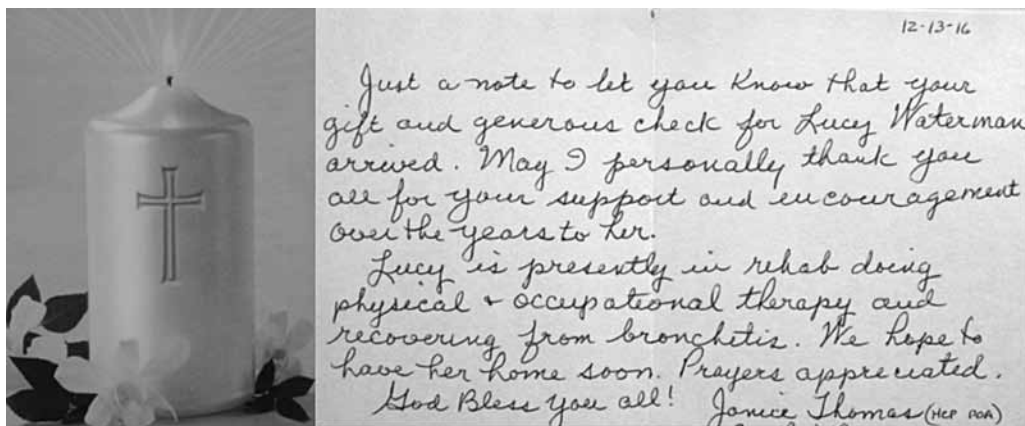 12-13-16
Just a note to let you know that your
gift and generous check for Lucy Waterman
arrived. May I personally thank you
all for your support and encouragement
over the years to her.
Lucy is presently in rehab doing
physical & occupational therapy and
recovering from bronchitis. We hope to
have her home soon. Prayers appreciated.
God Bless you all! Janice Thomas (HCP POA)